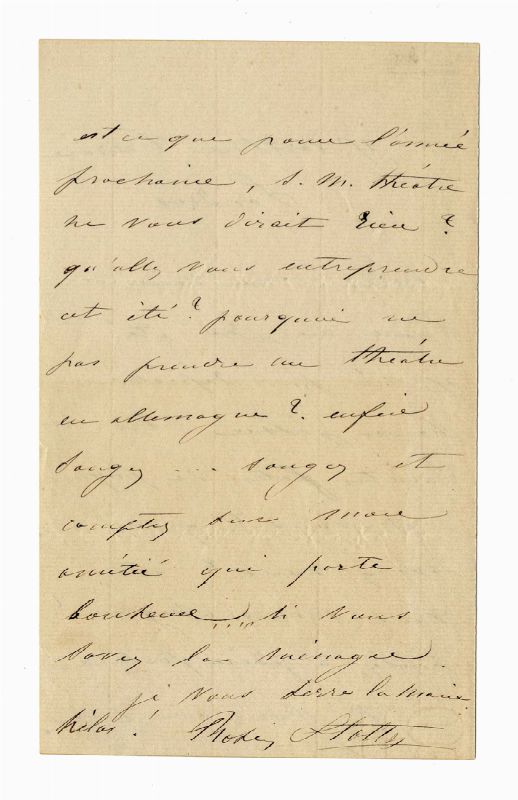 est ce que pour l'année
prochaine, S. M. théâtre
ne vous dirait rien ?
qu'allez vous entreprendre
cet été ? pourquoi ne
pas prendre un théâtre
en allemagne ? enfin
songez ... songez et
comptez sur mon
amitié qui porte
bonheur ..... si vous
savez la ménager
je vous serre la main
hélas !